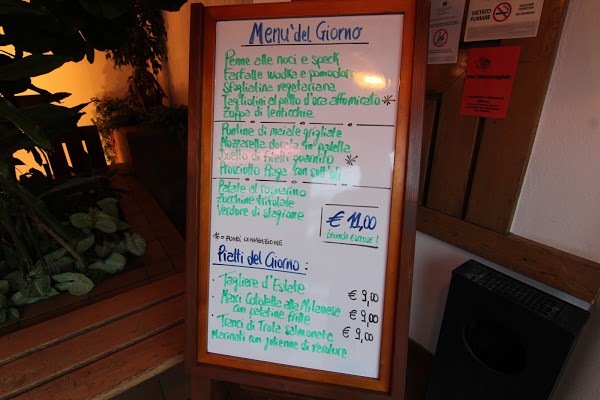 Menu' del Giorno
Penne alle noci e speck
Farfalle wodka e pomodoro
Sfogliatina vegetariana
Tagliolini al petto d'oca affumicato *
Zuppa di lenticchie
Puntine di maiale grigliate
Mozzarella dorata in padella
di filetti guarnito *
Prosciotto Praga con sott'oli
Patate al rosmarino
Zucchine trifolate
Verdure di stagione
€ 11,00
bevande escluse!
*= FUORI CONVENZIONE
Piatti del Giorno:
· Tagliere d'Estate € 9,00
· Maxi Cotoletta alla Milanese
con patatine fritte € 9,00
· Tranci di Trota Salmonata € 9,00
Marinati con julienne di verdure
VIETATO
FUMARE